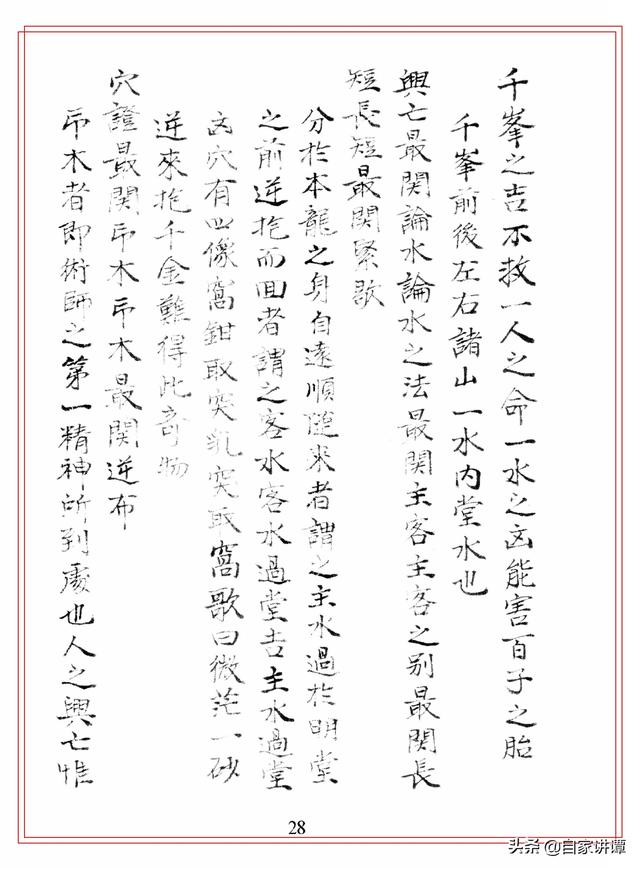 千峯之吉不救一人之命一水之凶能害百子之胎
千峯前後左右諸山一水内堂水也
興亡最関論水論水之法最関主客主客之别最関長
短長短最関緊歌
分於本龍之身自遠順随来者謂之主水過於明堂
之前逆抱而回者謂之客水客水過堂吉主水過堂
凶穴有四像窩鉗取突乳突取窩歌曰微茫一砂
逆來抱千金難得此奇物
穴證最関吊木吊木最関逆布
吊木者即術師之第一精神所到處也人之興亡惟
28
头条 @自家讲谭